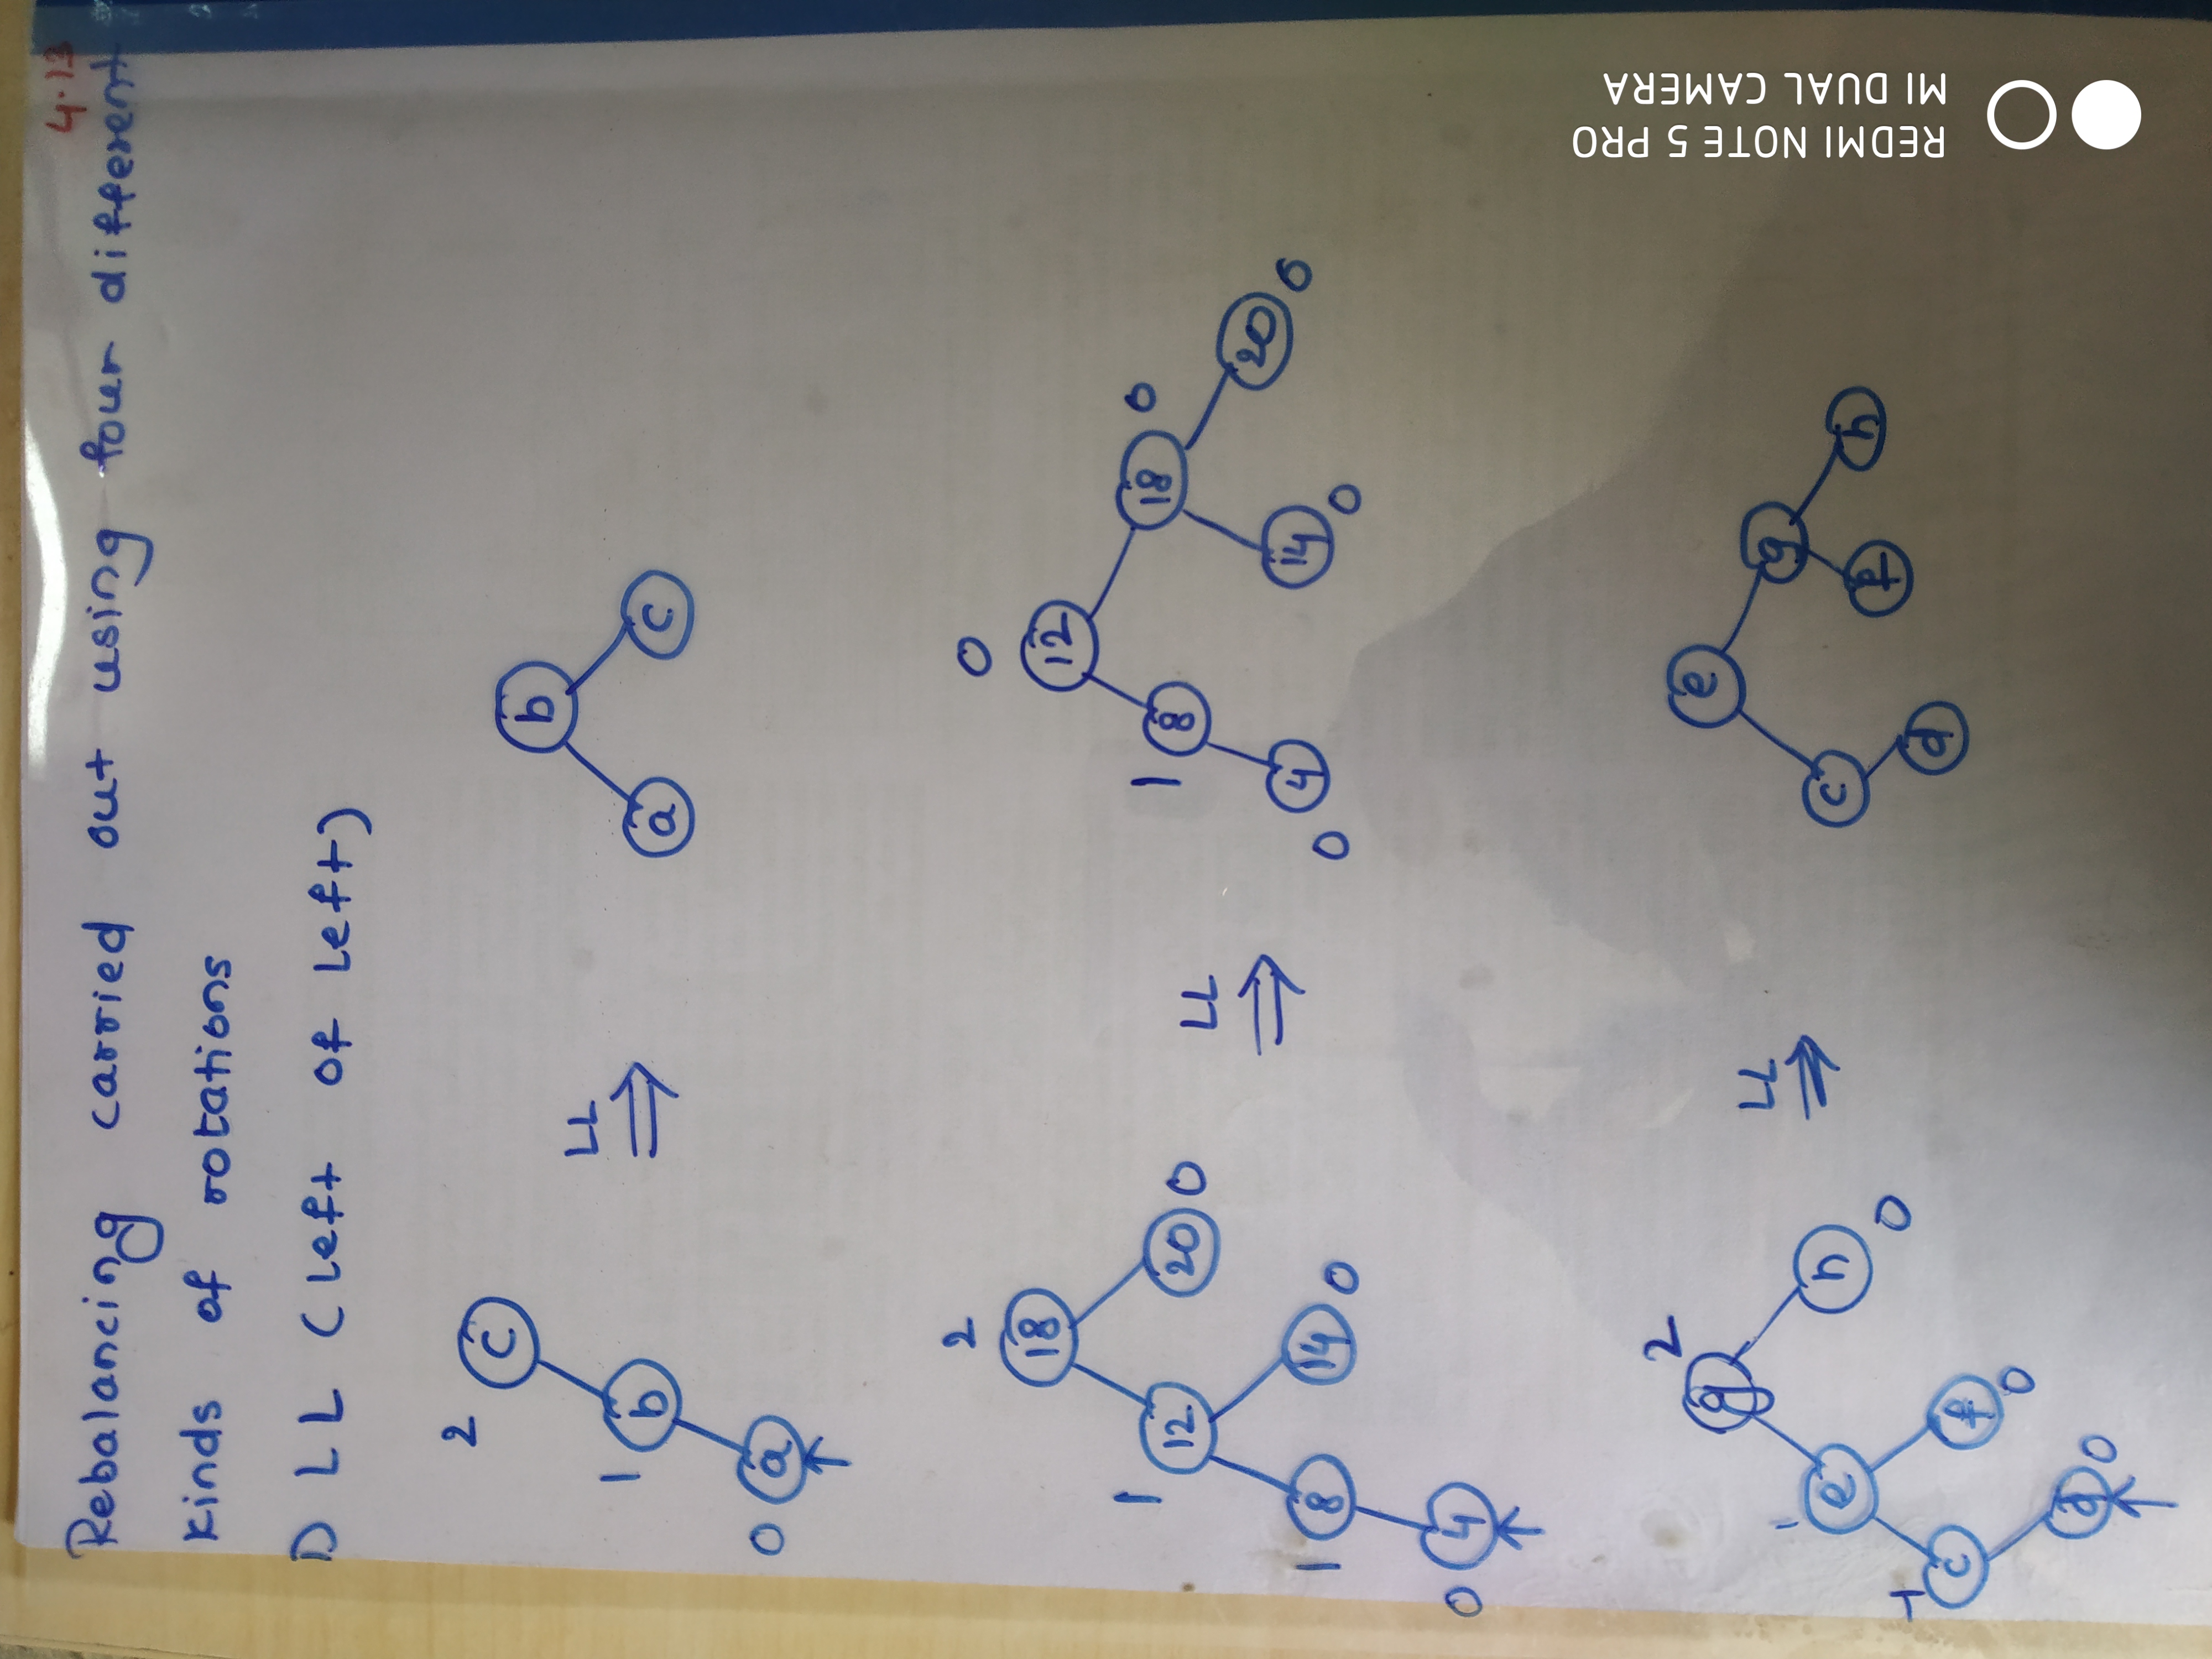 4.13
Rebalancing carried out using four different
kinds of rotations
1) L L (Left of Left)
2
1
0
c
b
a
LL
b
a
c
2
1
1
0
18
12
20
0
8
14
0
4
LL
0
12
1
8
18
0
0
4
14
0
20
0
2
g
1
e
h
0
-1
c
f
0
d
0
LL
e
c
g
d
f
h
REDMI NOTE 5 PRO
MI DUAL CAMERA